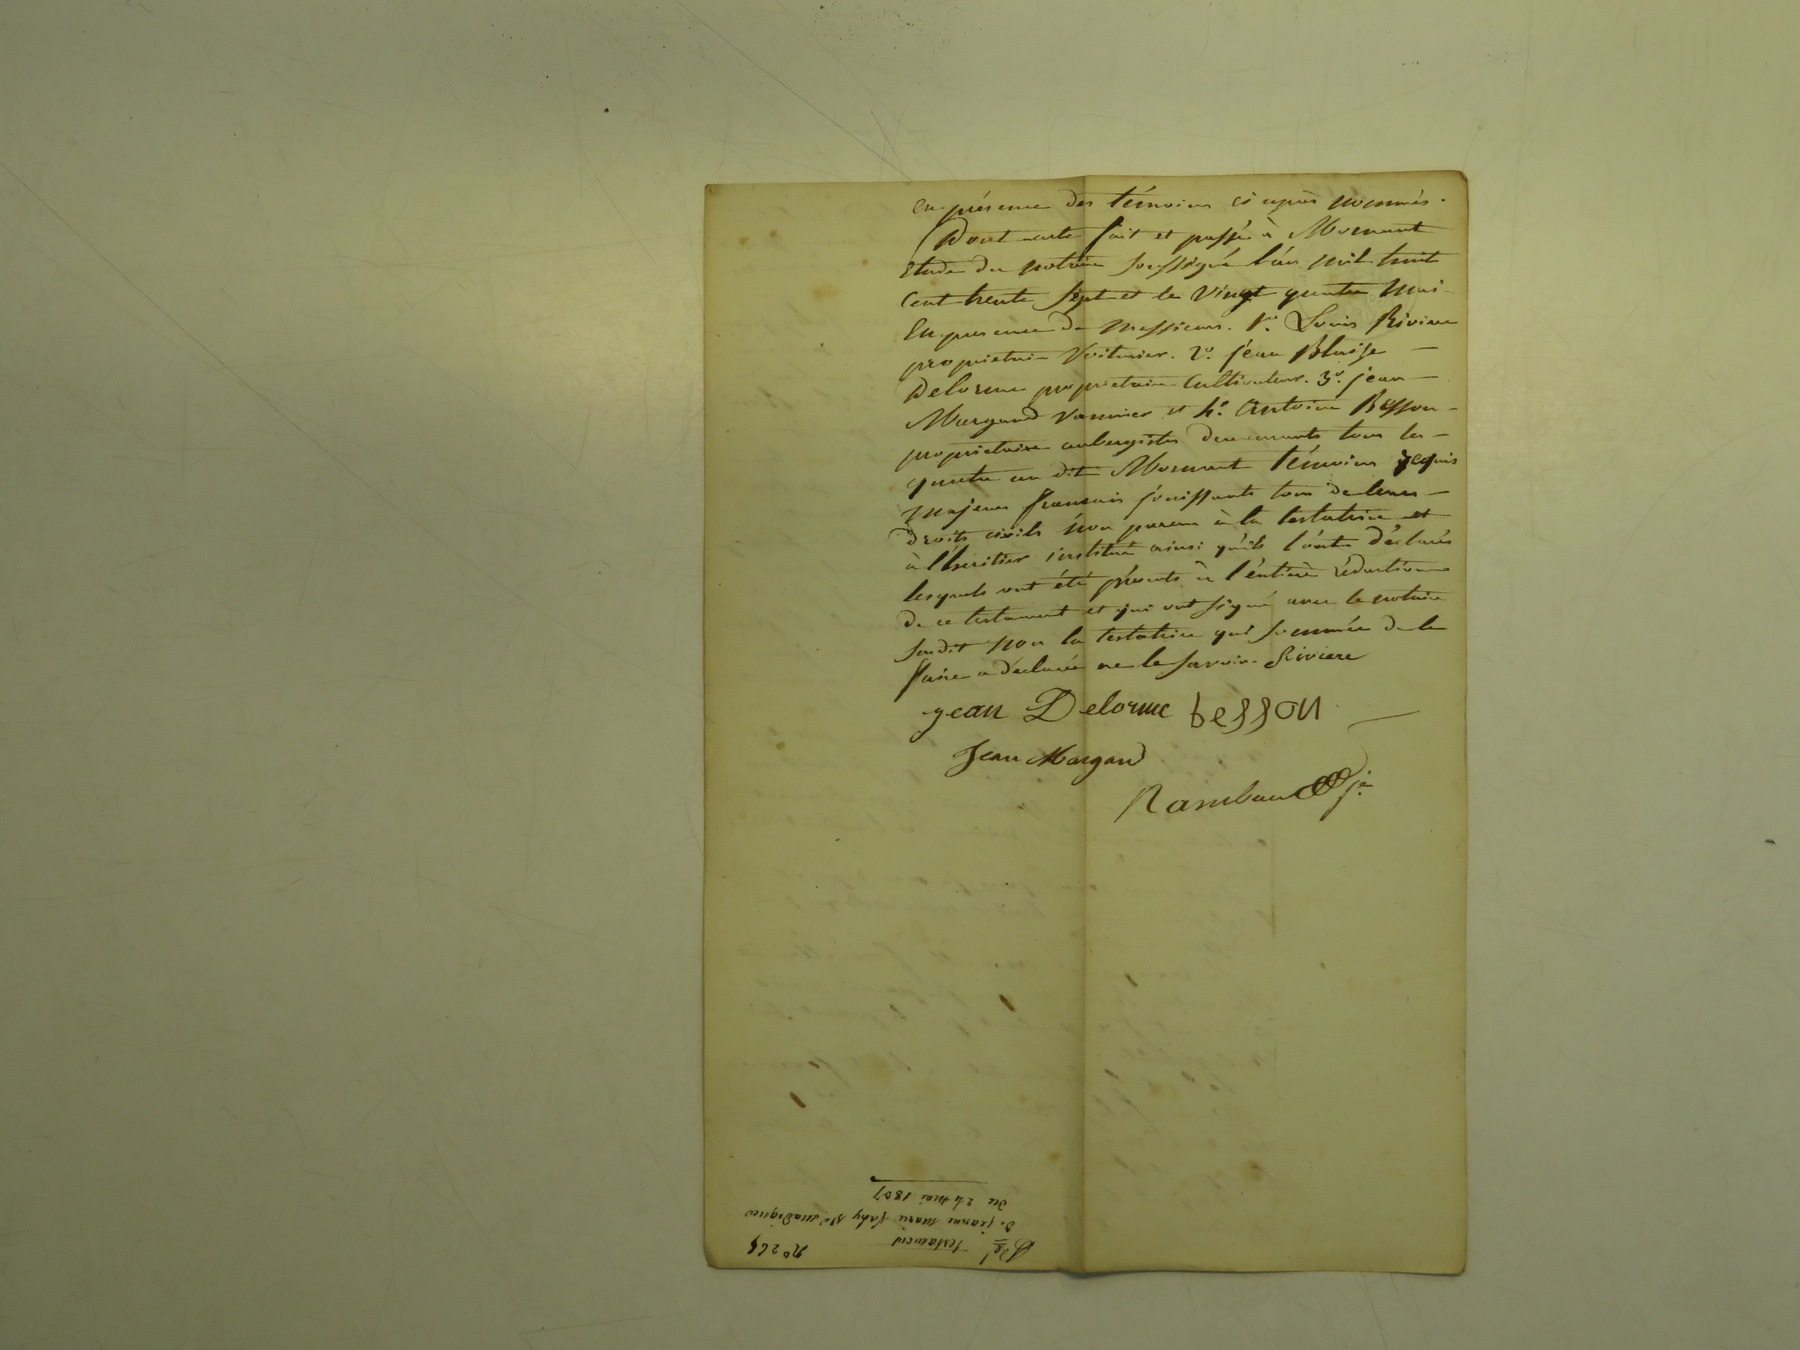 en présence des témoins ci après nommés.
Dont acte fait et passé à Mornant
Etude du notaire soussigné l'an mil huit
Cent trente sept et le vingt quatre Mai
En presence de Messieurs. 1º. Louis Riviere
proprietaire Voiturier. 2º. jean Blaise
Delorme proprietaire Cultivateur. 3º. jean
Margand vannier et 4º. Antoine Besson
proprietaire aubergiste demeurants tous les
quatre au dit Mornant témoins requis
majeurs français jouissants tous de leurs
droits civils non parens à la testatrice et
à l'héritier institué ainsi qu'ils l'ont déclarés
lesquels ont été présents à l'entière rédaction
de ce testament et qui ont signé avec le notaire
susdit non la testatrice qui sommée de le
faire a déclarée ne le savoir. Riviere
jean Delorme besson
Jean Margand
Rambaud jne
nº 264
testament
de jeanne marie
du 24 mai 1837